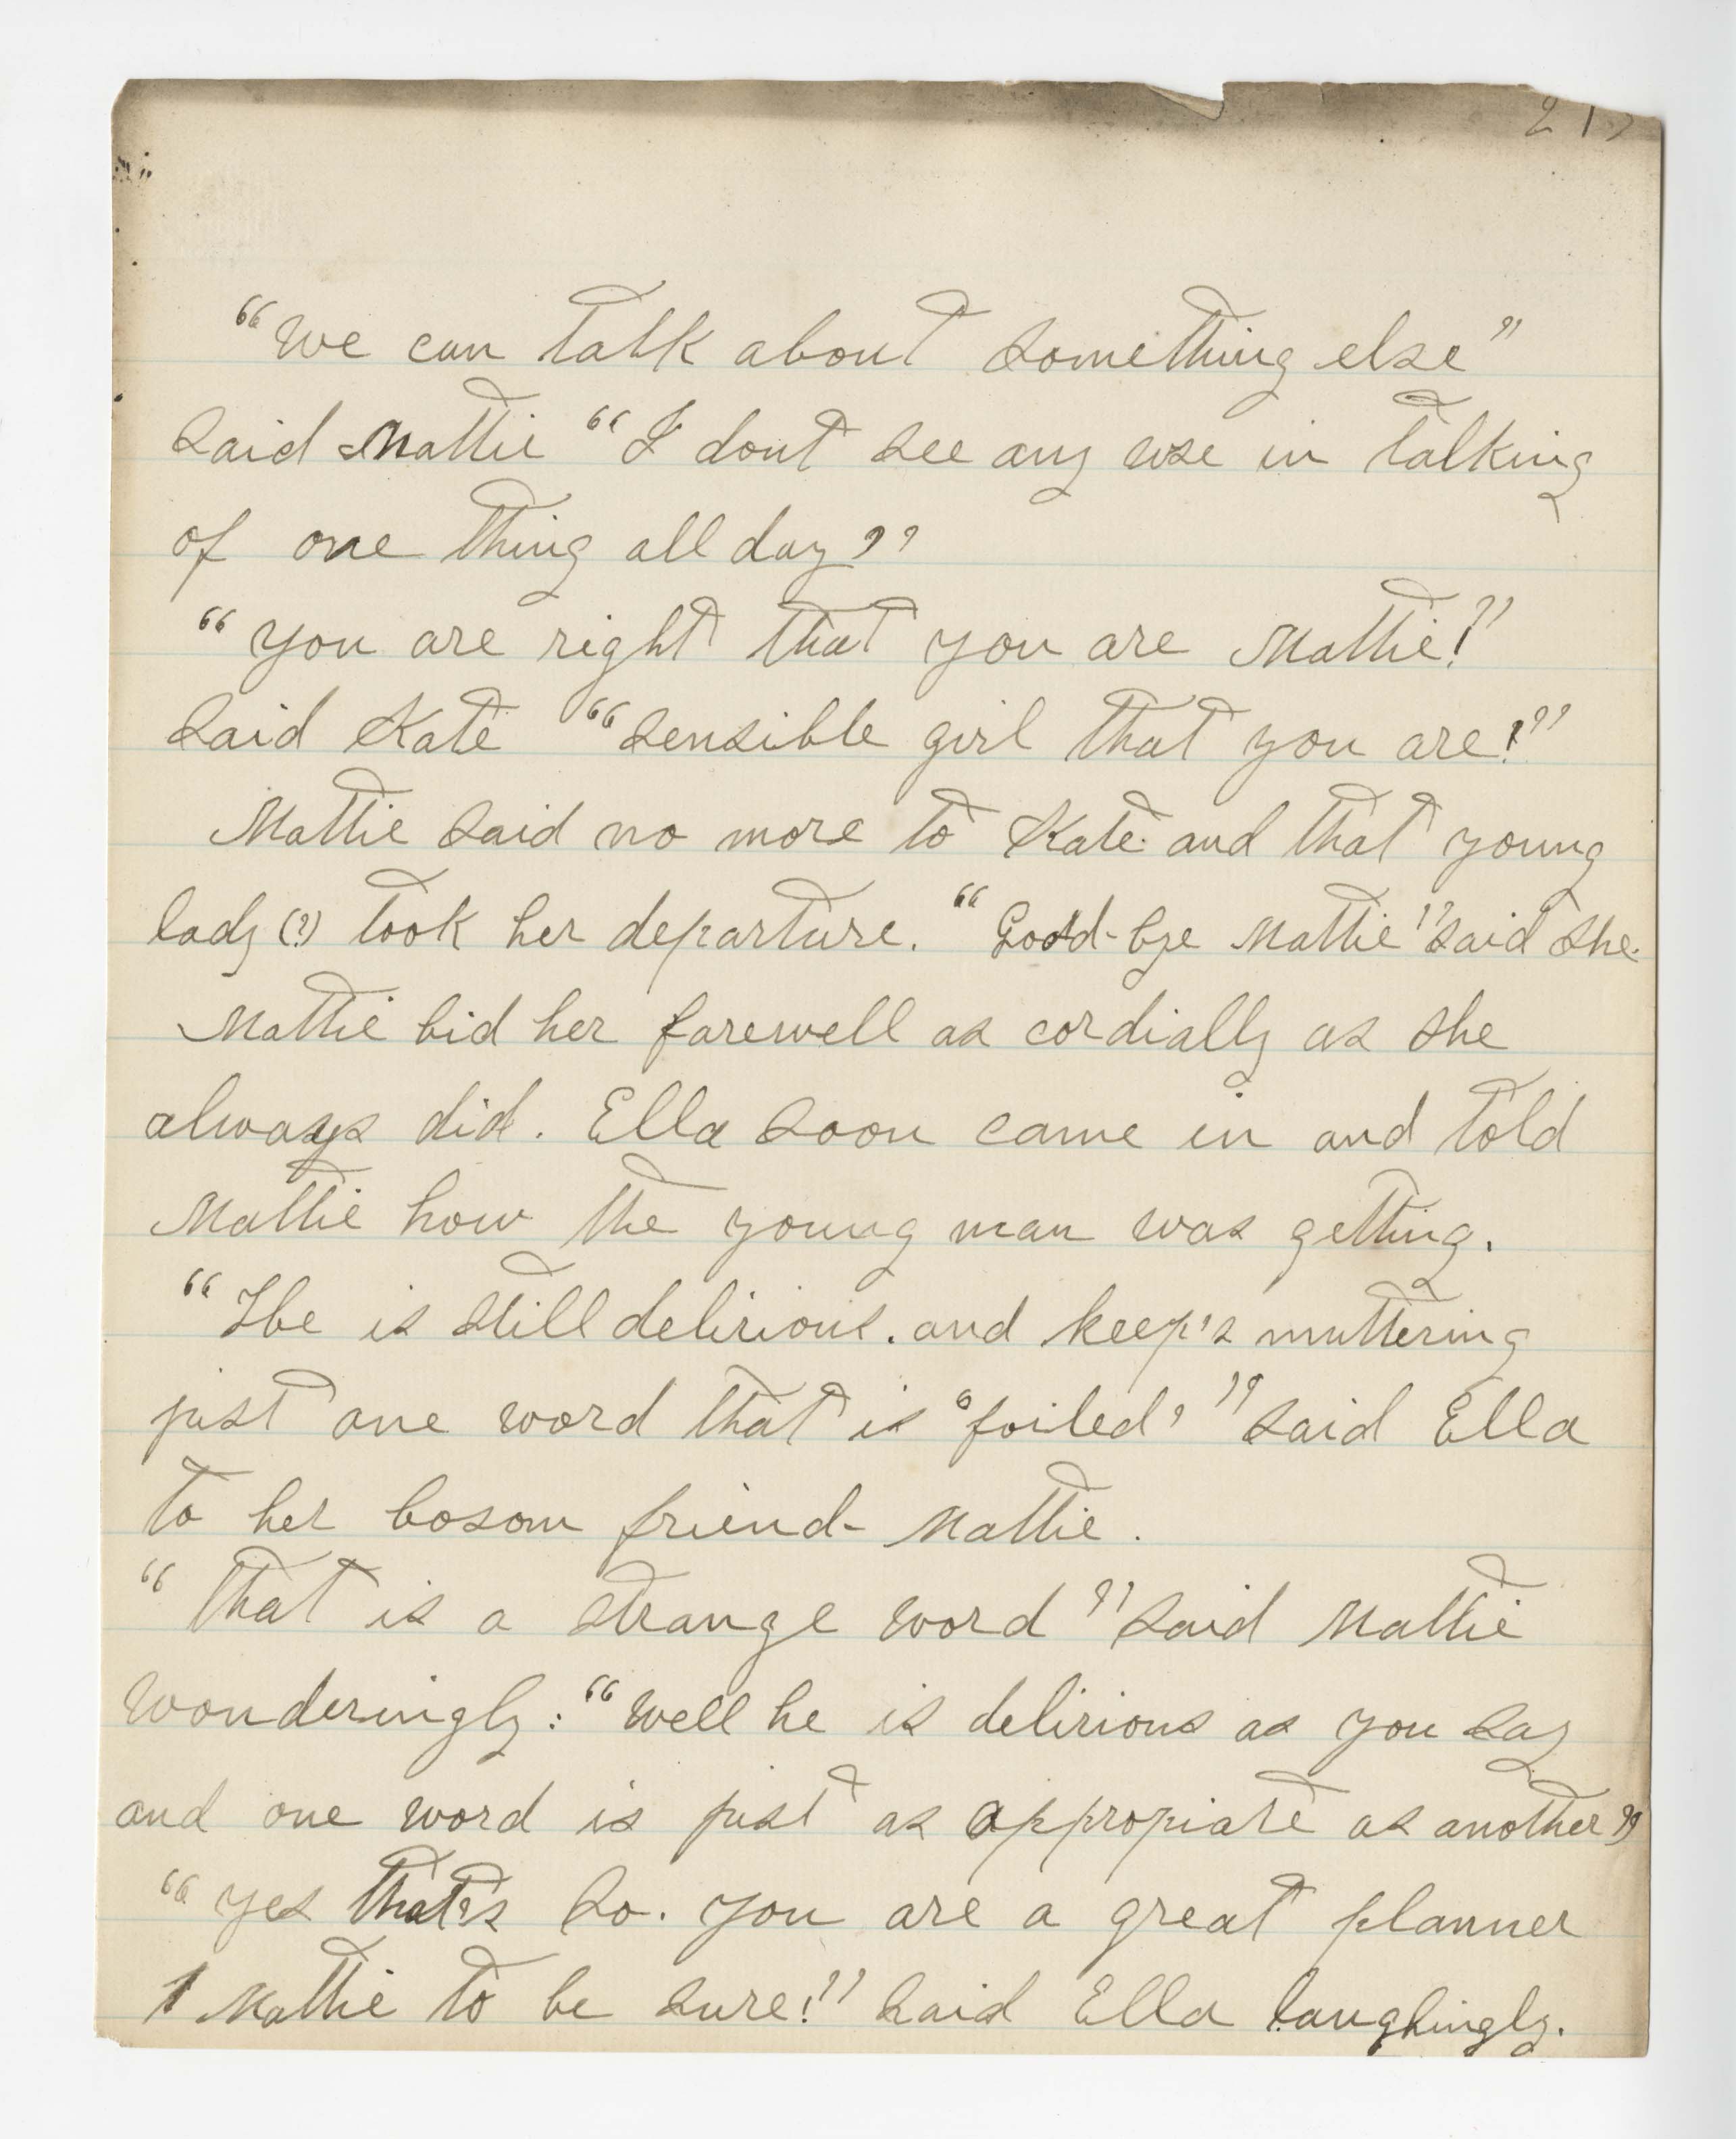 "We can talk about something else"
said Mattie "I dont see any use in talking
of one thing all day"
"you are right that you are Mattie!"
said Kate "sensible girl that you are!"
Mattie said no more to Kate and that young
lady (?) took her departure. "Good-bye Mattie" said she.
Mattie bid her farewell as cordially as she
always did. Ella soon came in and told
Mattie how the young man was getting.
"He is still delirious. and keep's muttering
just one word that is 'foiled'" said Ella
to her bosom friend- Mattie.
"that is a strange word" said Mattie
wonderingly: "well he is delirious as you say
and one word is just as appropiate as another"
"yes that's so. you are a great planner
Mattie to be sure!" said Ella laughingly.